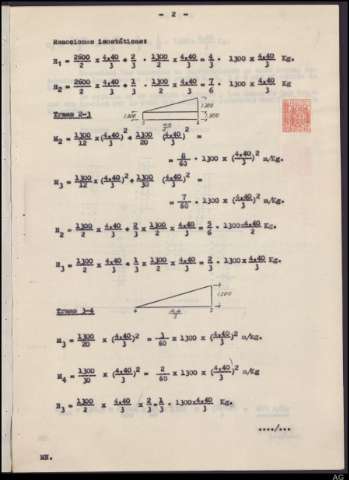 - 2 -
Reacciones isostáticas:
R₁ = 2600/2 x 4.40/3 + 2/3 · 1300/2 x 4.40/3 = 4/3 · 1300 x 4.40/3 Kg.
R₂ = 2600/2 x 4.40/3 + 1/3 · 1300/2 x 4.40/3 = 7/6 · 1300 x 4.40/3 Kg
Tramo 2-3
1300
1300
1300
M₂ = 1300/12 x (4.40/3)² + 1300/20 (4.40/3)² =
= 8/60 · 1300 x (4.40/3)² m/Kg.
M₃ = 1300/12 x (4.40/3)² + 1300/30 (4.40/3)² =
= 7/60 · 1300 x (4.40/3)² m/Kg.
R₂ = 1300/2 x 4.40/3 + 2/3 x 1300/2 x 4.40/3 = 5/6 · 1300x4.40/2 Kg.
R₃ = 1300/2 x 4.40/3 + 1/3 x 1300/2 x 4.40/3 = 2/3 · 1300x4.40/3 Kg.
Tramo 3-4
1300
4 4.40/3 3
M₃ = 1300/20 x (4.40/3)² = 3/60 x 1300 x (4.40/3)² m/Kg.
M₄ = 1300/30 x (4.40/3)² = 2/60 x 1300 x (4.40/3)² m/Kg
R₃ = 1300/2 x 4.40/3 x 2/3 = 1/3 · 1300x4.40/3 Kg.
..../...
MN.
AG